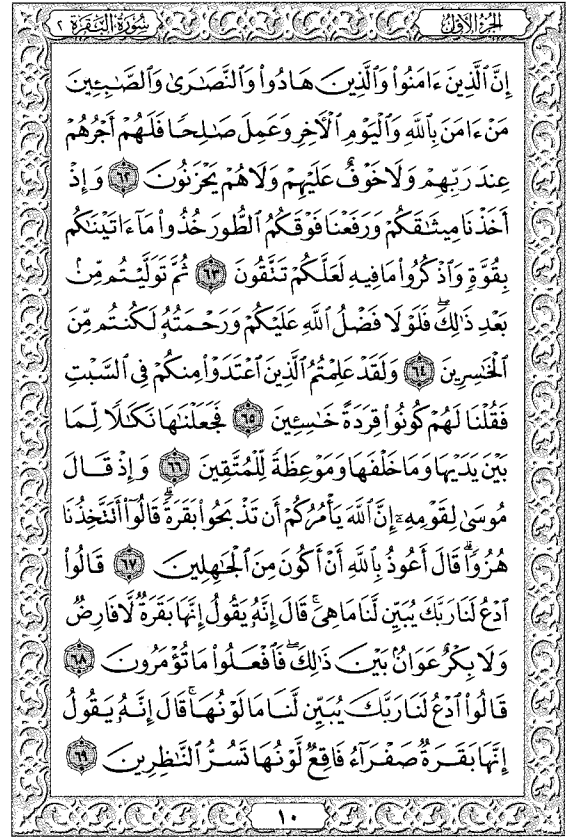 الجزء الأول
سورة البقرة ٢
إِنَّ ٱلَّذِينَ ءَامَنُوا۟ وَٱلَّذِينَ هَادُوا۟ وَٱلنَّصَٰرَىٰ وَٱلصَّٰبِـِٔينَ
مَنْ ءَامَنَ بِٱللَّهِ وَٱلْيَوْمِ ٱلْءَاخِرِ وَعَمِلَ صَٰلِحًا فَلَهُمْ أَجْرُهُمْ
عِندَ رَبِّهِمْ وَلَا خَوْفٌ عَلَيْهِمْ وَلَا هُمْ يَحْزَنُونَ ٦٢ وَإِذْ
أَخَذْنَا مِيثَٰقَكُمْ وَرَفَعْنَا فَوْقَكُمُ ٱلطُّورَ خُذُوا۟ مَآ ءَاتَيْنَٰكُم
بِقُوَّةٍ وَٱذْكُرُوا۟ مَا فِيهِ لَعَلَّكُمْ تَتَّقُونَ ٦٣ ثُمَّ تَوَلَّيْتُم مِّنۢ
بَعْدِ ذَٰلِكَ ۖ فَلَوْلَا فَضْلُ ٱللَّهِ عَلَيْكُمْ وَرَحْمَتُهُۥ لَكُنتُم مِّنَ
ٱلْخَٰسِرِينَ ٦٤ وَلَقَدْ عَلِمْتُمُ ٱلَّذِينَ ٱعْتَدَوْا۟ مِنكُمْ فِى ٱلسَّبْتِ
فَقُلْنَا لَهُمْ كُونُوا۟ قِرَدَةً خَٰسِـِٔينَ ٦٥ فَجَعَلْنَٰهَا نَكَٰلًا لِّمَا
بَيْنَ يَدَيْهَا وَمَا خَلْفَهَا وَمَوْعِظَةً لِّلْمُتَّقِينَ ٦٦ وَإِذْ قَالَ
مُوسَىٰ لِقَوْمِهِۦٓ إِنَّ ٱللَّهَ يَأْمُرُكُمْ أَن تَذْبَحُوا۟ بَقَرَةً ۖ قَالُوٓا۟ أَتَتَّخِذُنَا
هُزُوًا ۖ قَالَ أَعُوذُ بِٱللَّهِ أَنْ أَكُونَ مِنَ ٱلْجَٰهِلِينَ ٦٧ قَالُوا۟
ٱدْعُ لَنَا رَبَّكَ يُبَيِّن لَّنَا مَا هِىَ ۚ قَالَ إِنَّهُۥ يَقُولُ إِنَّهَا بَقَرَةٌ لَّا فَارِضٌ
وَلَا بِكْرٌ عَوَانٌۢ بَيْنَ ذَٰلِكَ ۖ فَٱفْعَلُوا۟ مَا تُؤْمَرُونَ ٦٨
قَالُوا۟ ٱدْعُ لَنَا رَبَّكَ يُبَيِّن لَّنَا مَا لَوْنُهَا ۚ قَالَ إِنَّهُۥ يَقُولُ
إِنَّهَا بَقَرَةٌ صَفْرَآءُ فَاقِعٌ لَّوْنُهَا تَسُرُّ ٱلنَّٰظِرِينَ ٦٩
١٠